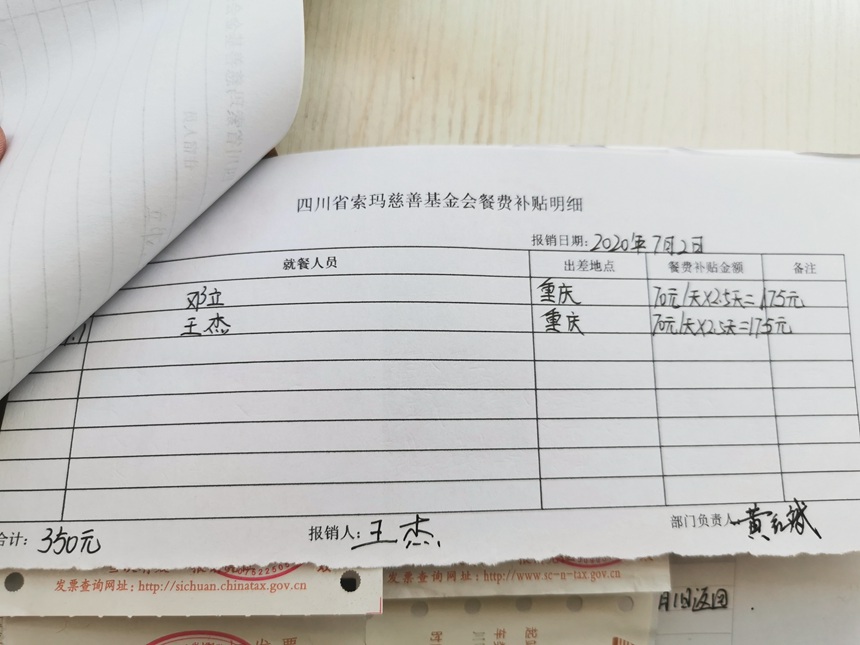 四川省索玛慈善基金会餐费补贴明细
报销日期：2020年7月2日
就餐人员 出差地点 餐费补贴金额 备注
邓立 重庆 70元/天×2.5天=175元
王杰 重庆 70元/天×2.5天=175元
合计：350元 报销人：王杰 部门负责人
发票查询网址：http://sichuan.chinatax.gov.cn
发票查询网址：http://www.sc-n-tax.gov.cn
月1日返回
发票